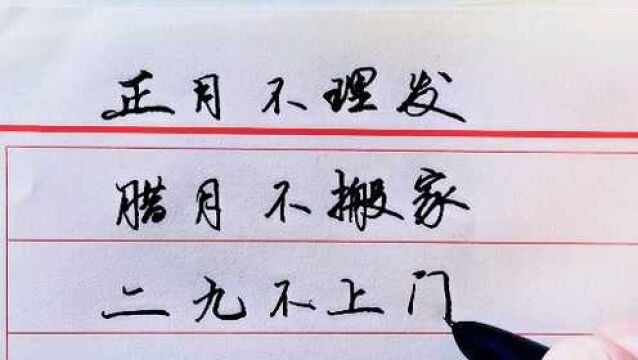 正月不理发
腊月不搬家
二九不上门